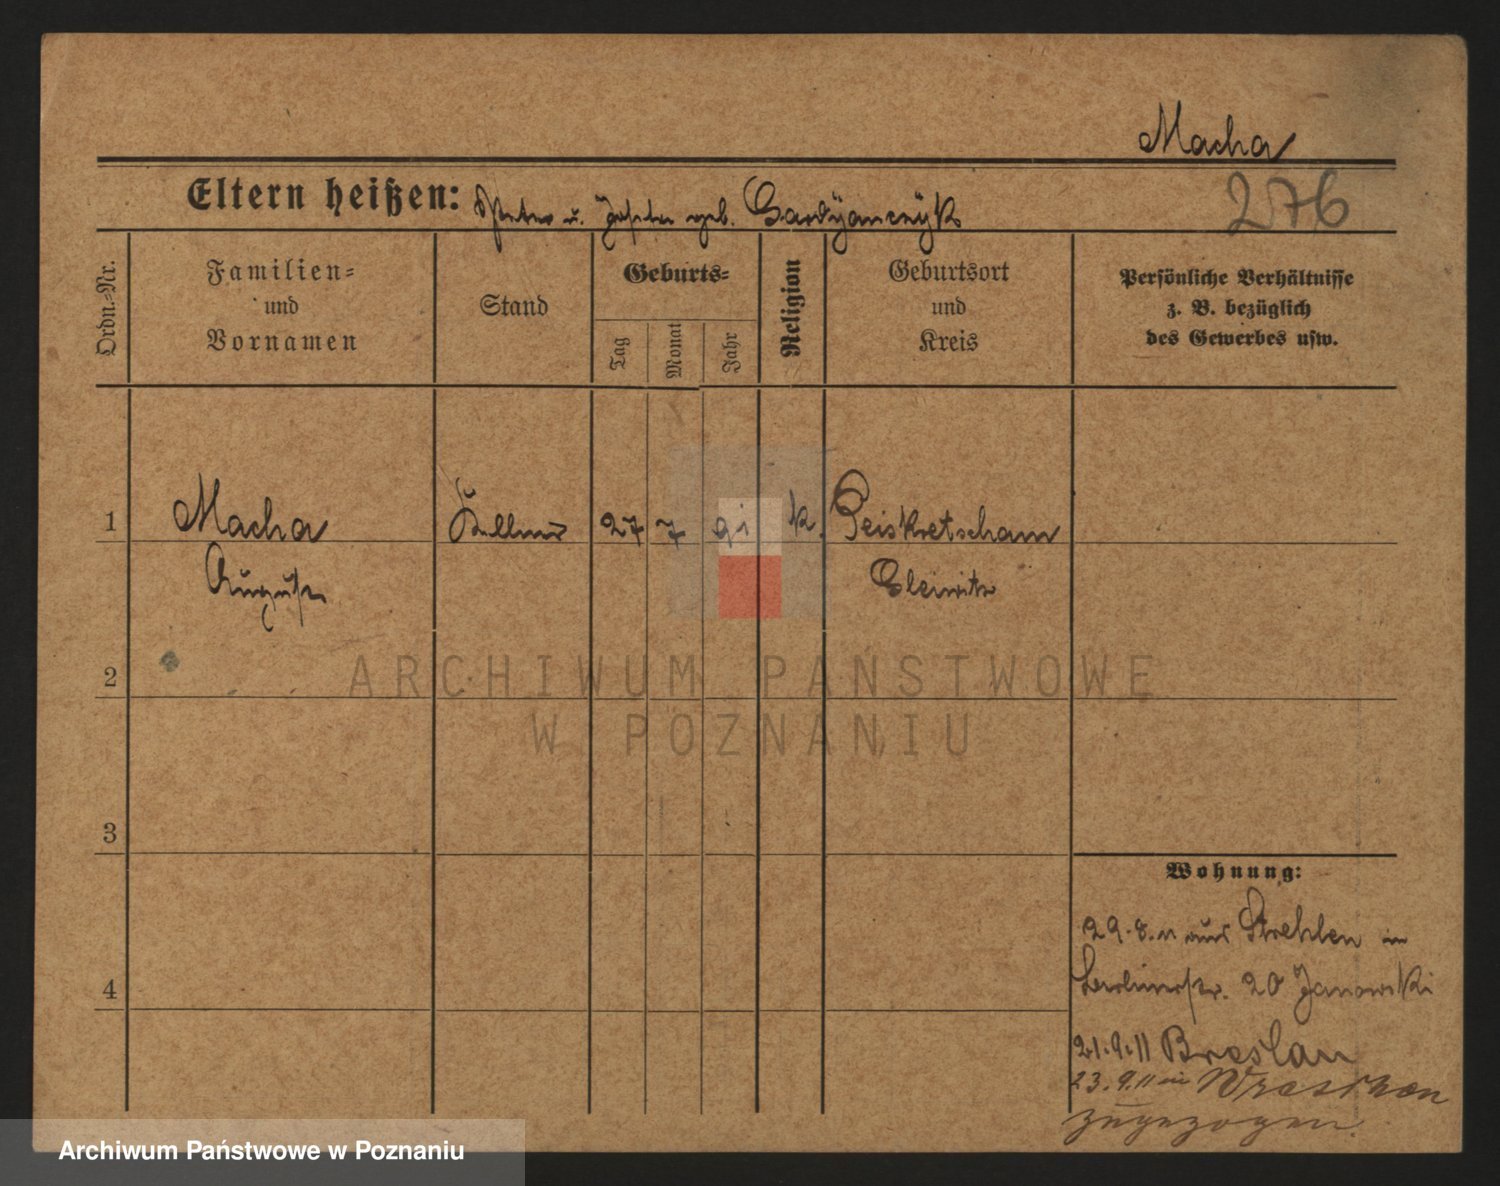 Macha
Eltern heißen: Peter u. Josefa geb. Gardyanczyk
276
Ordn.=Nr.
Familien=
und
Vornamen
Stand
Geburts=
Tag
Monat
Jahr
Religion
Geburtsort
und
Kreis
Persönliche Verhältnisse
z. B. bezüglich
des Gewerbes usw.
1 Macha Kellner 27 7 91 k. Peiskretscham
August Gleiwitz
2
ARCHIWUM PAŃSTWOWE
W POZNANIU
3
Wohnung:
29.8.11 aus Strehlen in
4
Berlinerstr. 20 Janowski
21.9.11 Breslau
23.9.11 in Wreschen
zugezogen.
Archiwum Państwowe w Poznaniu